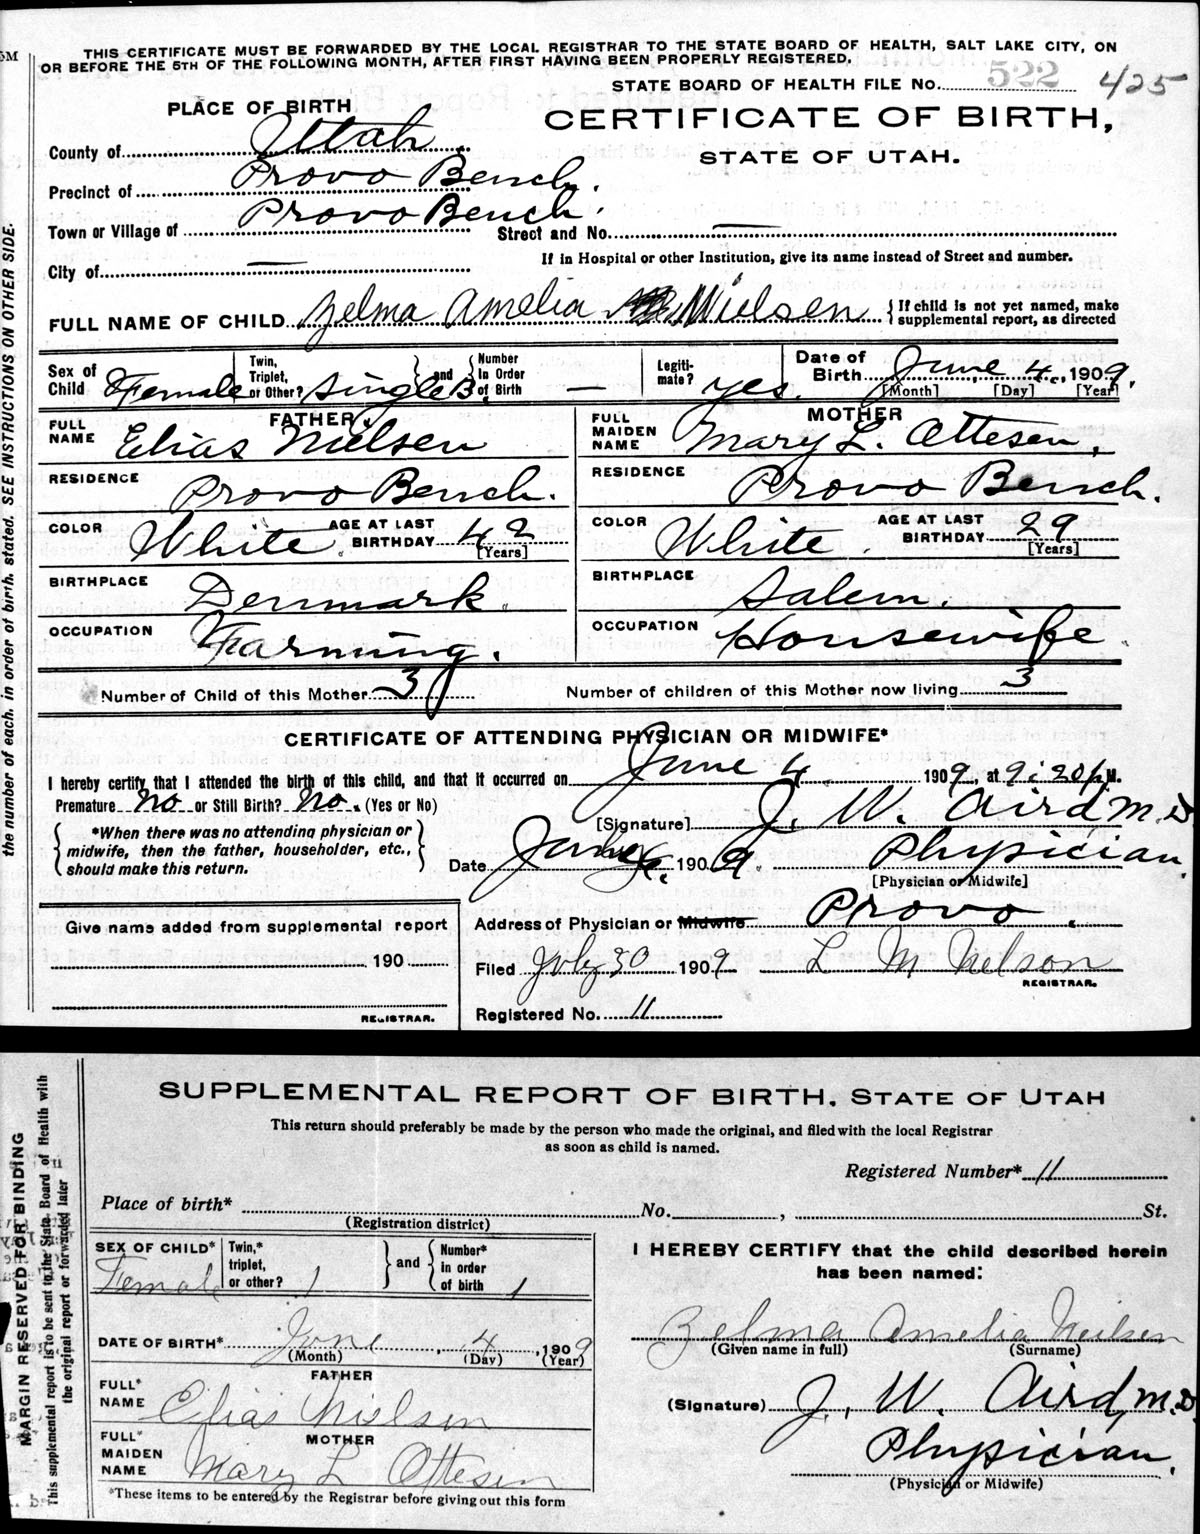 THIS CERTIFICATE MUST BE FORWARDED BY THE LOCAL REGISTRAR TO THE STATE BOARD OF HEALTH, SALT LAKE CITY, ON
OR BEFORE THE 5TH OF THE FOLLOWING MONTH, AFTER FIRST HAVING BEEN PROPERLY REGISTERED.
STATE BOARD OF HEALTH FILE No. 522 425
PLACE OF BIRTH
CERTIFICATE OF BIRTH,
STATE OF UTAH.
County of Utah
Precinct of Provo Bench.
Town or Village of Provo Bench.
Street and No. —
City of —
If in Hospital or other Institution, give its name instead of Street and number.
FULL NAME OF CHILD Zelma Amelia Nielsen {If child is not yet named, make
supplemental report, as directed
Sex of Child Female
Twin, Triplet, or Other? Single B. } and { Number In Order of Birth —
Legitimate? yes.
Date of Birth June 4, 1909.
[Month] [Day] [Year]
FATHER
FULL NAME Elias Nielsen
RESIDENCE Provo Bench.
COLOR White. AGE AT LAST BIRTHDAY 42 [Years]
BIRTHPLACE Denmark.
OCCUPATION Farming.
MOTHER
FULL MAIDEN NAME Mary L. Ottesen,
RESIDENCE Provo Bench.
COLOR White. AGE AT LAST BIRTHDAY 29 [Years]
BIRTHPLACE Salem.
OCCUPATION Housewife.
Number of Child of this Mother 3 Number of children of this Mother now living 3
CERTIFICATE OF ATTENDING PHYSICIAN OR MIDWIFE*
I hereby certify, that I attended the birth of this child, and that it occurred on June 4, 1909, at 9:20 p M.
Premature No or Still Birth? No. (Yes or No)
{ *When there was no attending physician or
midwife, then the father, householder, etc.,
should make this return. }
[Signature] J. W. Aird M.D
Date 1909. Physician.
[Physician or Midwife]
Address of Physician or Midwife Provo.
Filed July 30 1909 L M Nelson
REGISTRAR.
Registered No. 11
Give name added from supplemental report
190
REGISTRAR.
the number of each, in order of birth, stated. SEE INSTRUCTIONS ON OTHER SIDE.
SUPPLEMENTAL REPORT OF BIRTH, STATE OF UTAH
This return should preferably be made by the person who made the original, and filed with the local Registrar
as soon as child is named.
Registered Number* 11
Place of birth* No. , St.
(Registration district)
SEX OF CHILD* Female
Twin,* triplet, or other? 1 } and { Number* in order of birth 1
DATE OF BIRTH* June, 4, 1909
(Month) (Day) (Year)
FATHER
FULL* NAME Elias Nielsen
MOTHER
FULL* MAIDEN NAME Mary L Ottesen
*These items to be entered by the Registrar before giving out this form
I HEREBY CERTIFY that the child described herein
has been named:
Zelma Amelia Neilsen
(Given name in full) (Surname)
(Signature) J. W. Aird, M.D.
Physician.
(Physician or Midwife)
MARGIN RESERVED FOR BINDING
This supplemental report is to be sent to the State Board of Health with
the original report or forwarded later